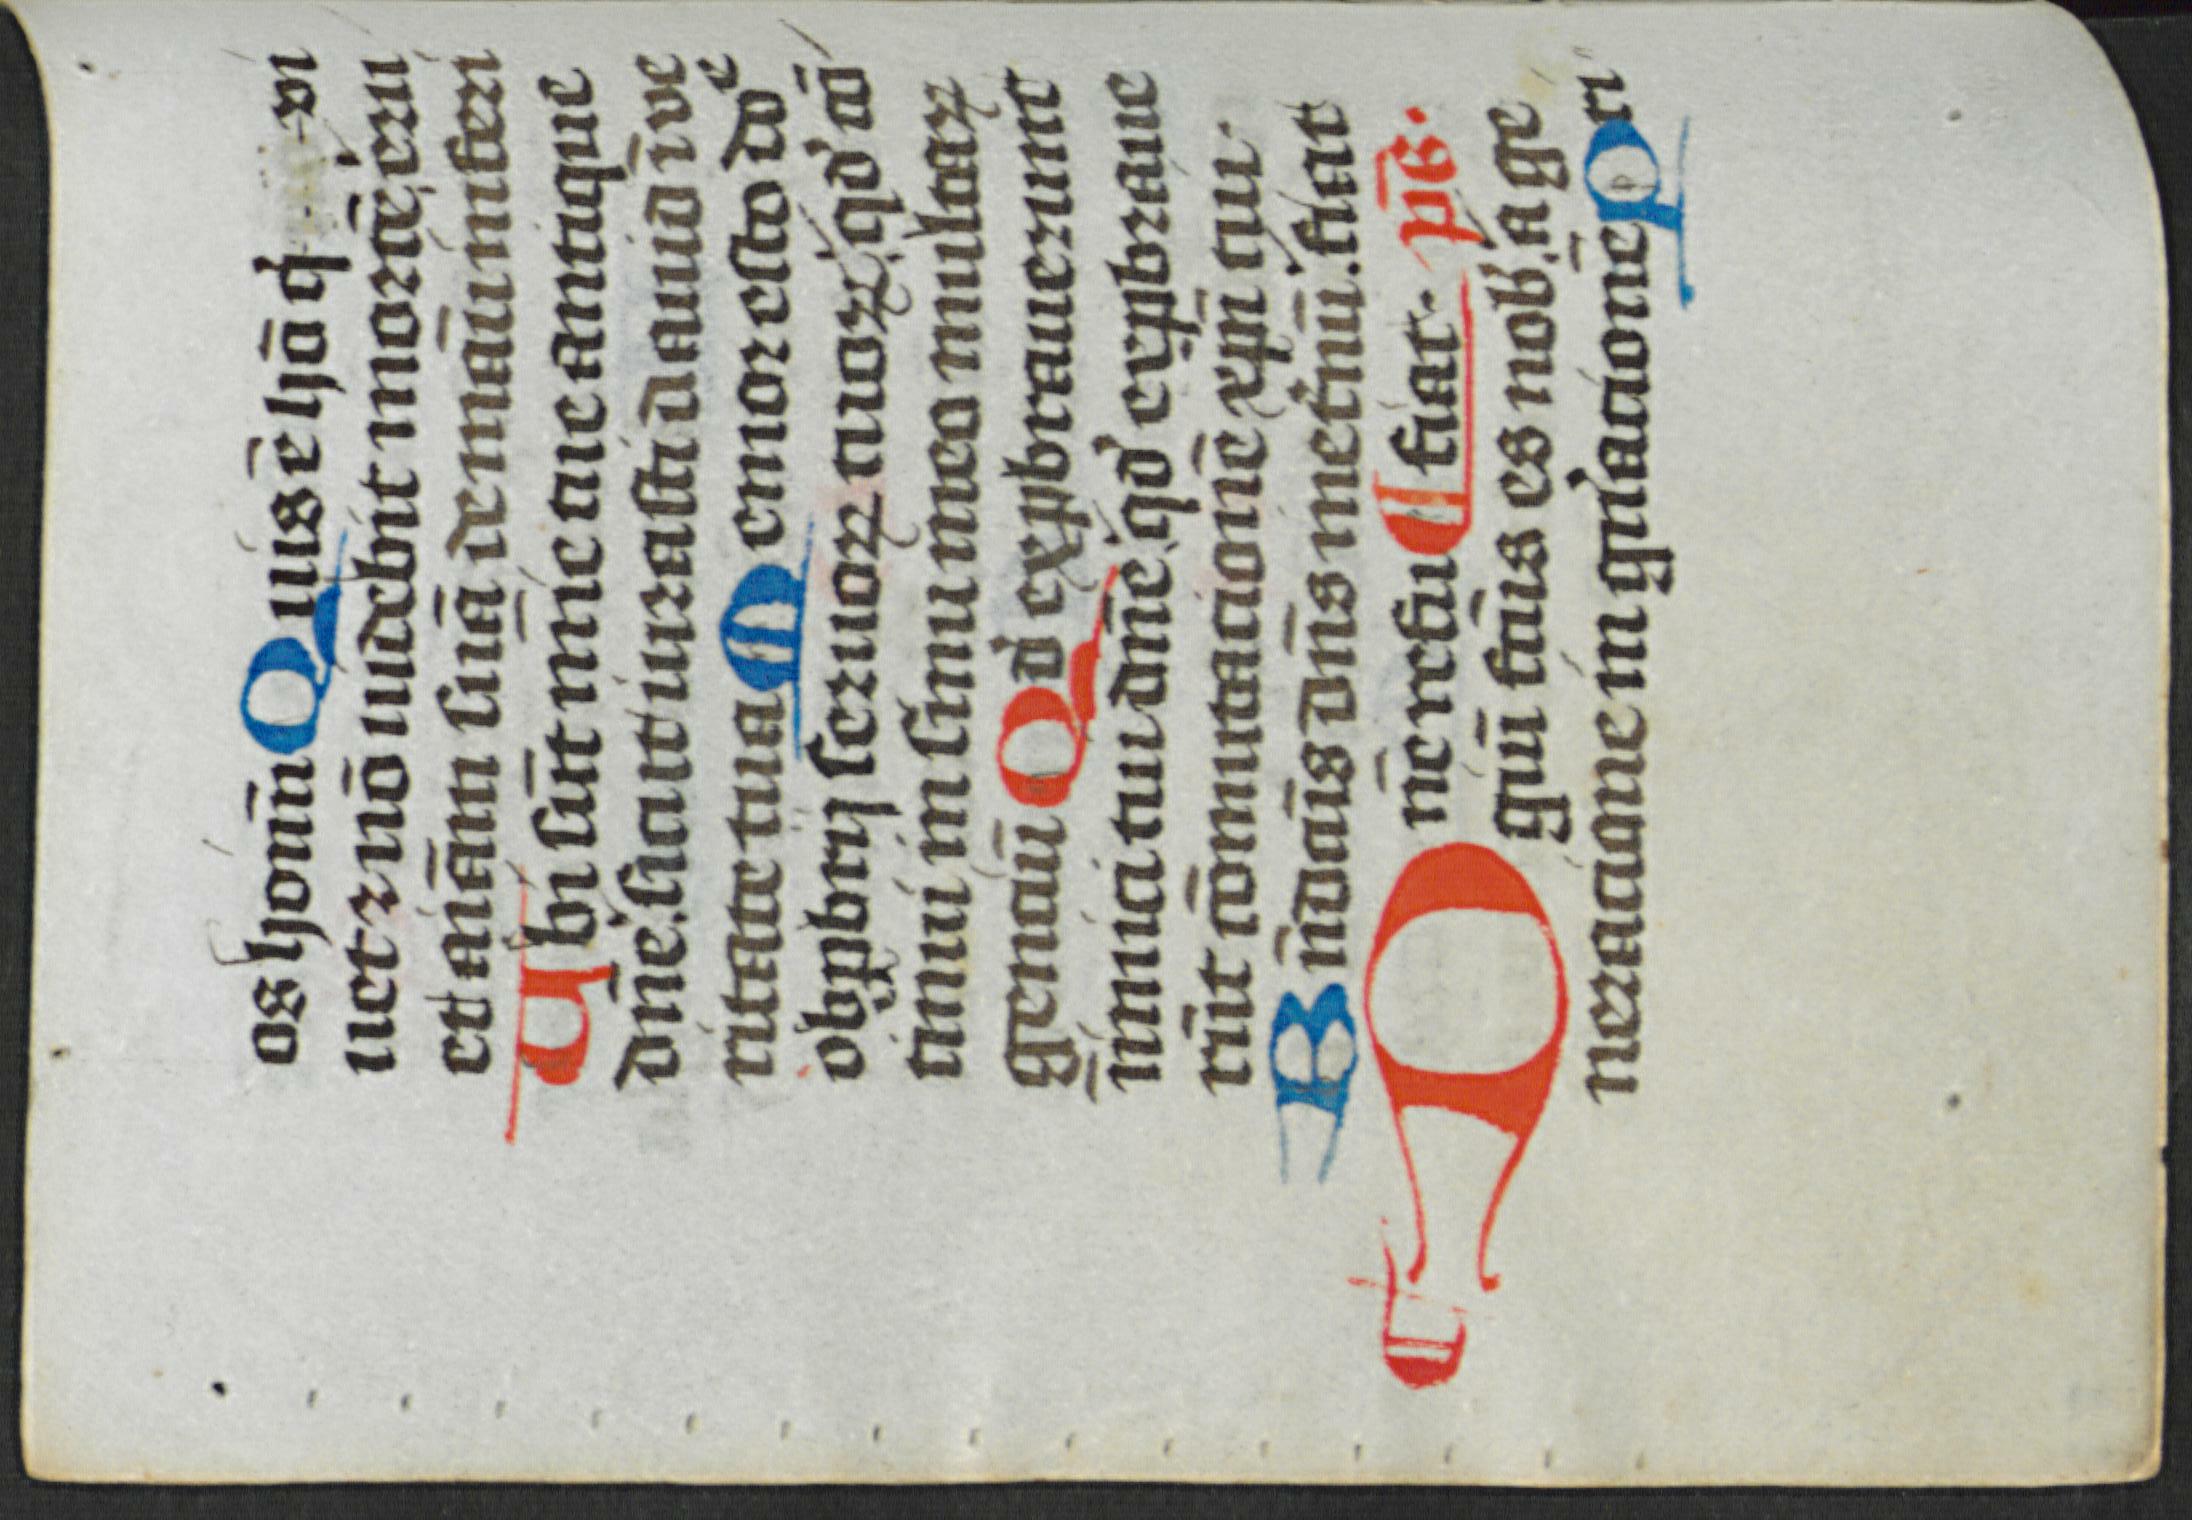 os hoīuꝫ Quis ē hō q' vi
uet ⁊ nō uidebit mortē eru
et aīam suā de manu inferi
Ubi sūt mīe tue antique
dn̄e. sicut iurasti dauid ī ve
ritate tua Memor esto dn̄e
obprbrij seruoꝝ tuoꝝ. qd' cō
tinui in sinu meo multaꝝ
genciū Qd' exprbrauerunt
īimici tui dn̄e qd' exprbraue
rūt cōmutacionē xp̄i tui.
Bn̄dcūs dn̄s inet'nū. fiat
fiat. ps̄.
Dn̄e refu
giū fcūs es nob̄. A ge
neracione in gn̄'acionē Pri